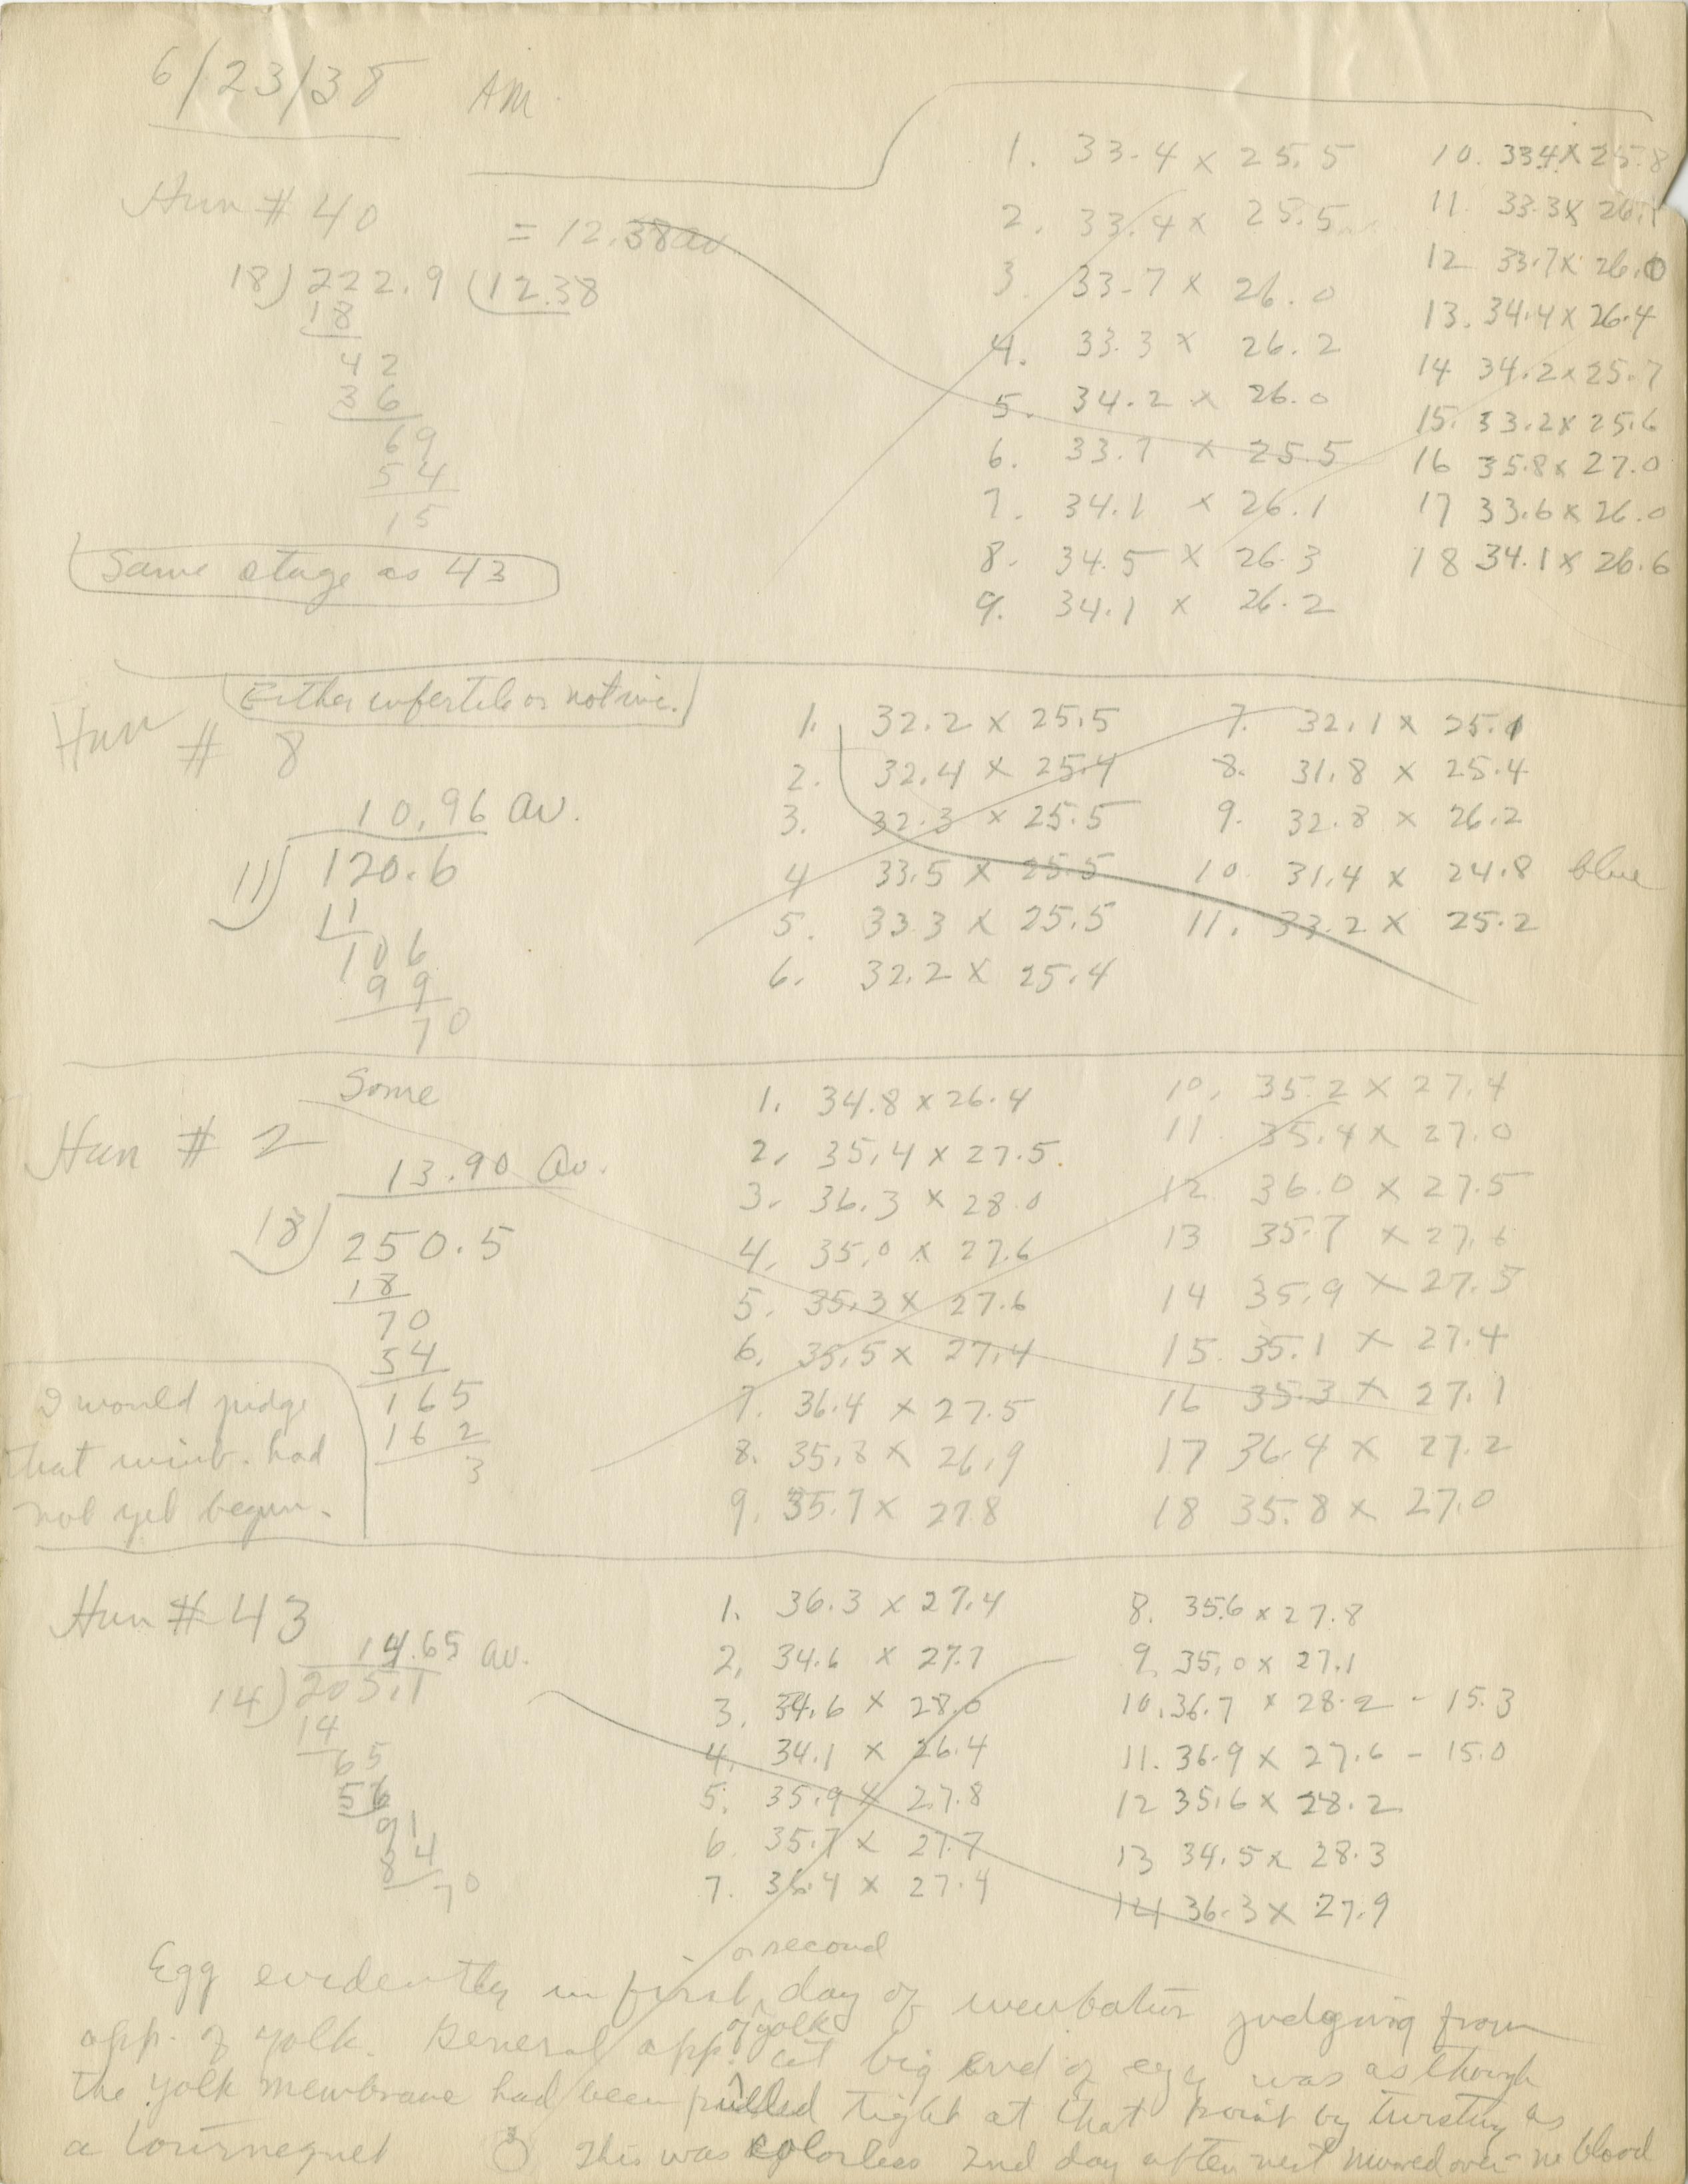 6/23/38 AM.
Hun # 40
= 12.38 av
18) 222.9 (12.38
18
42
36
69
54
15
Same stage as 43
1. 33.4 x 25.5
2. 33.4 x 25.5
3. 33.7 x 26.0
4. 33.3 x 26.2
5. 34.2 x 26.0
6. 33.7 x 25.5
7. 34.1 x 26.1
8. 34.5 x 26.3
9. 34.1 x 26.2
10. 33.4 x 25.8
11. 33.3 x 26.1
12 33.7 x 26.0
13. 34.4 x 26.4
14 34.2 x 25.7
15. 33.2 x 25.6
16 35.8 x 27.0
17 33.6 x 26.0
18 34.1 x 26.6
Either infertile or not inc.
Hun # 8
10.96 av.
11) 120.6
11
106
99
70
1. 32.2 x 25.5
2. 32.4 x 25.4
3. 32.3 x 25.5
4 33.5 x 25.5
5. 33.3 x 25.5
6. 32.2 x 25.4
7. 32.1 x 25.1
8. 31.8 x 25.4
9. 32.8 x 26.2
10. 31.4 x 24.8 blue
11. 33.2 x 25.2
Some
Hun # 2
13.90 Av.
18) 250.5
18
70
54
165
162
3
I would judge
that incub. had
not yet begun.
1. 34.8 x 26.4
2. 35.4 x 27.5
3. 36.3 x 28.0
4. 35.0 x 27.6
5. 35.3 x 27.6
6. 35.5 x 27.4
7. 36.4 x 27.5
8. 35.8 x 26.9
9. 35.7 x 27.8
10. 35.2 x 27.4
11. 35.4 x 27.0
12. 36.0 x 27.5
13 35.7 x 27.6
14 35.9 x 27.5
15. 35.1 x 27.4
16 35.3 x 27.1
17 36.4 x 27.2
18 35.8 x 27.0
Hun # 43
14.65 av.
14) 205.1
14
65
56
91
84
70
1. 36.3 x 27.4
2. 34.6 x 27.7
3. 34.6 x 28.0
4. 34.1 x 26.4
5. 35.9 x 27.8
6. 35.7 x 27.7
7. 36.4 x 27.4
8. 35.6 x 27.8
9. 35.0 x 27.1
10. 36.7 x 28.2 - 15.3
11. 36.9 x 27.6 - 15.0
12 35.6 x 28.2
13 34.5 x 28.3
14 36.3 x 27.9
or second
Egg evidently in first day of incubation judging from
of yolk
app. of yolk. General app. at big end of egg was as though
the yolk membrane had been pulled tight at that point by twisting as
a tourniquet This was colorless 2nd day after nest mowed over - no blood